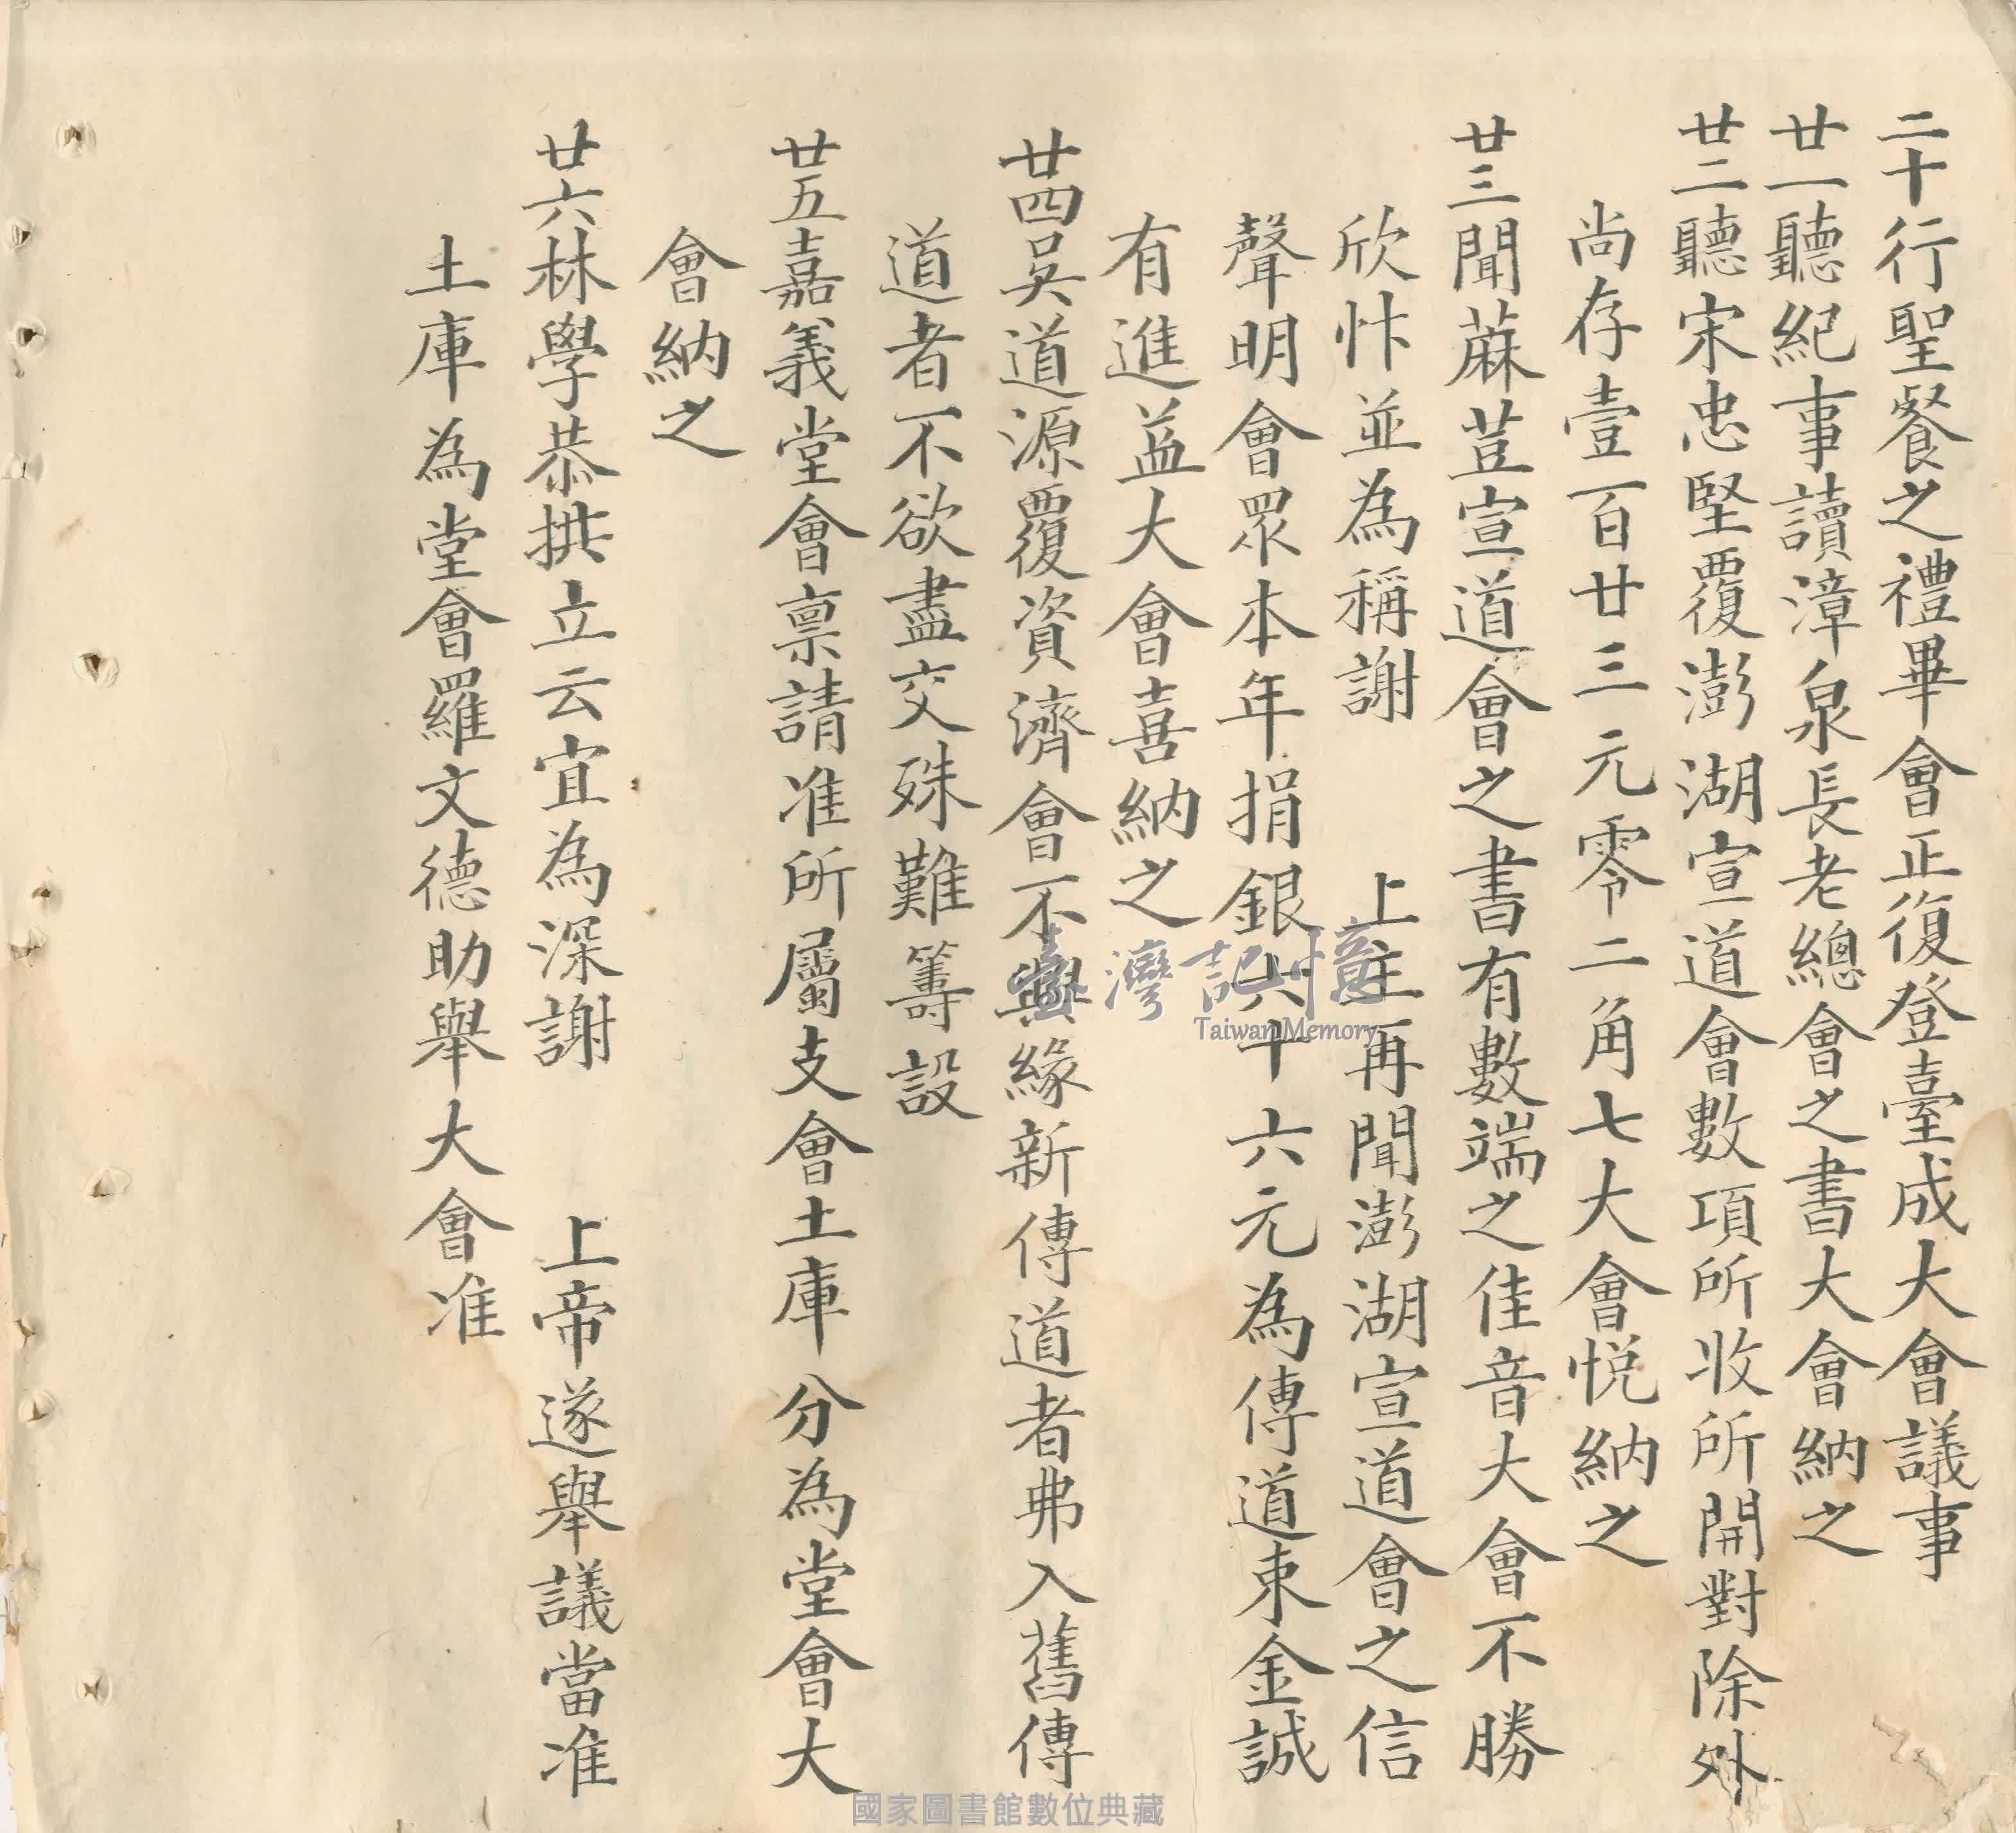 二十行聖餐之禮畢會正復登臺成大會議事
廿一聽紀事讀漳泉長老總會之書大會納之
廿二聽宋忠堅覆澎湖宣道會數項所收所開對除外
尚存壹百廿三元零二角七大會悅納之
廿三聞蔴荳宣道會之書有數端之佳音大會不勝
欣忭並為稱謝　上主再聞澎湖宣道會之信
聲明會眾本年捐銀六十六元為傳道束金誠
有進益大會喜納之
廿四吳道源覆資濟會不與緣新傳道者弗入舊傳
道者不欲盡交殊難籌設
廿五嘉義堂會禀請准所屬支會土庫分為堂會大
會納之
廿六林學恭拱立云宜為深謝　上帝遂舉議當准
土庫為堂會羅文德助舉大會准
臺灣記憶
Taiwan Memory
國家圖書館數位典藏